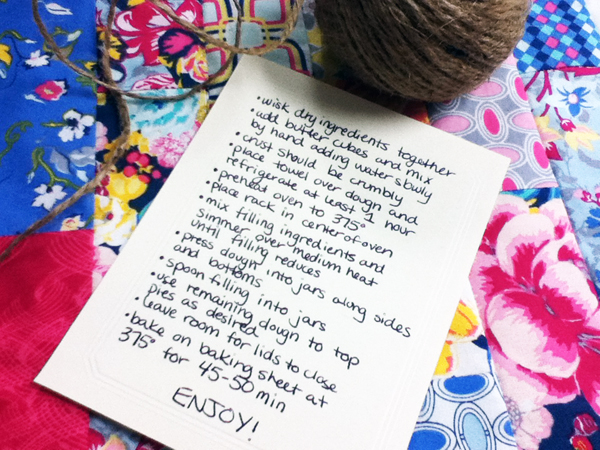 • wisk dry ingredients together
• add butter cubes and mix
by hand adding water slowly
• crust should be crumbly
• place towel over dough and
refrigerate at least 1 hour
• preheat oven to 375°
• place rack in center of oven
• mix filling ingredients and
simmer over medium heat
until filling reduces
• press dough into jars along sides
and bottoms
• spoon filling into jars
• use remaining dough to top
pies as desired
• leave room for lids to close
• bake on baking sheet at
375° for 45-50 min
ENJOY!